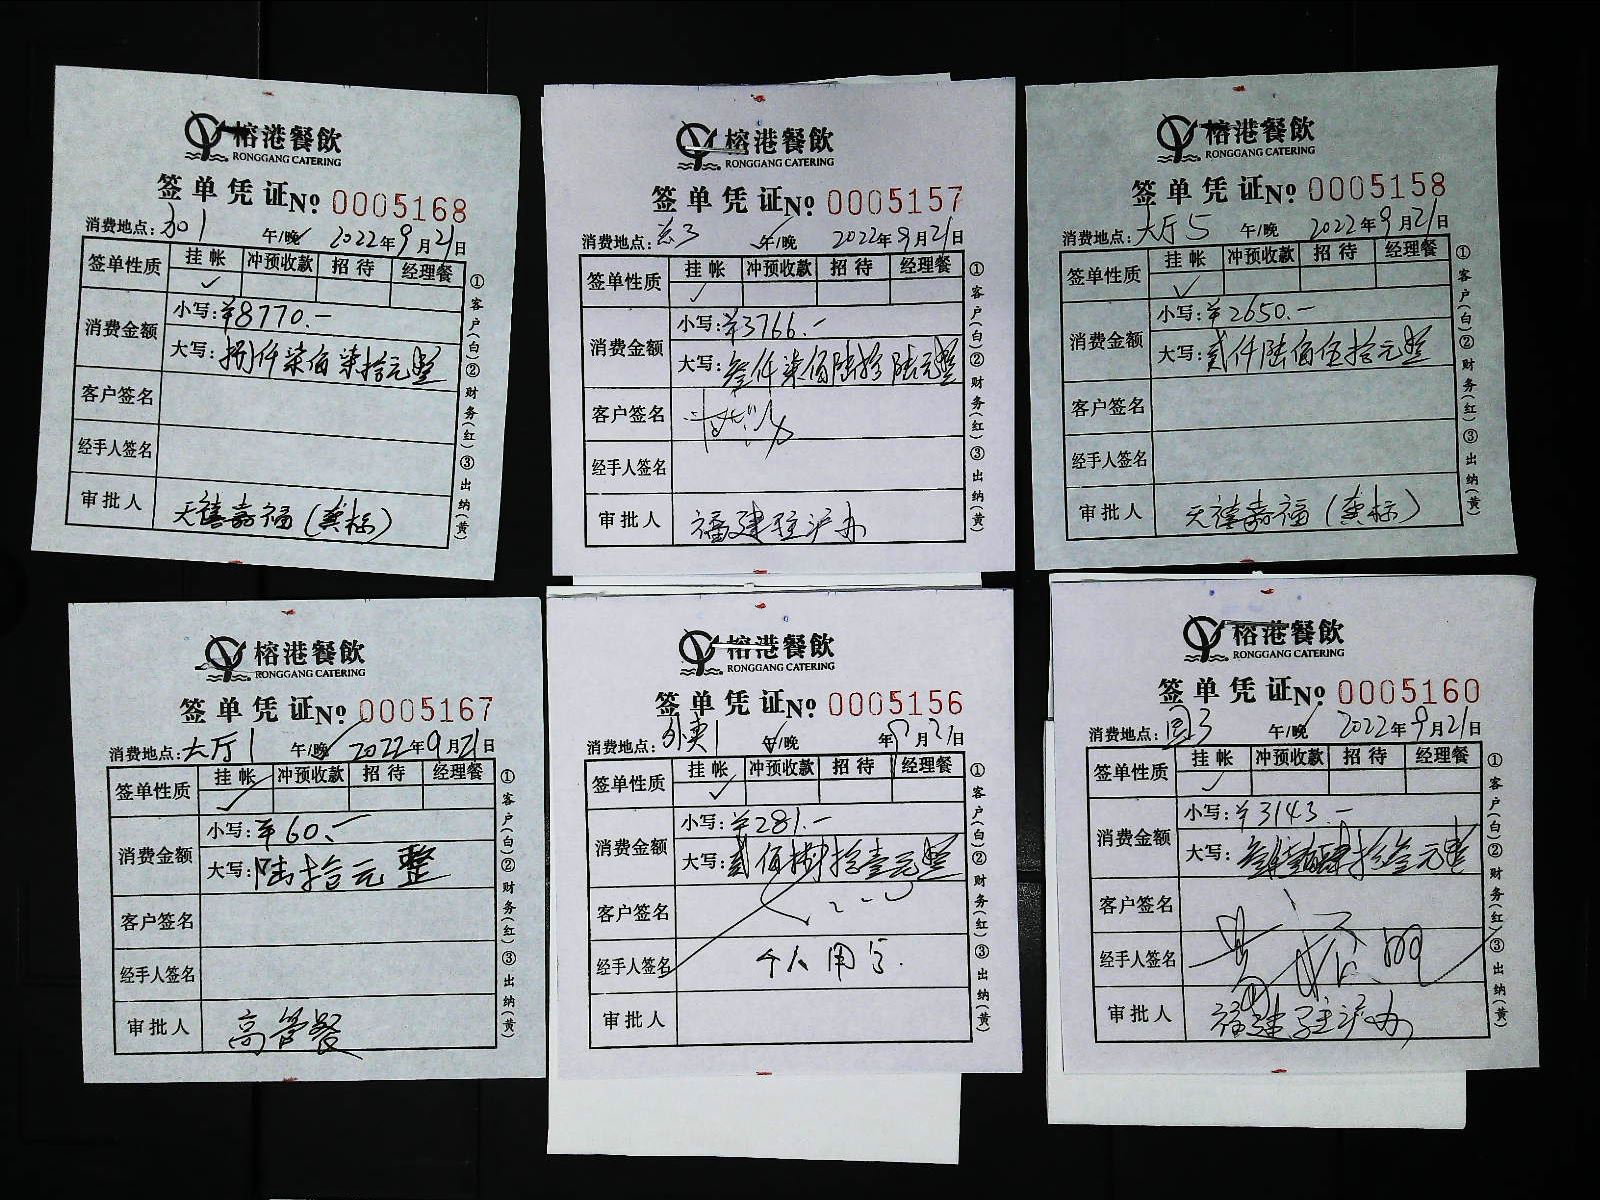 榕港餐飲
RONGGANG CATERING
签单凭证 No 0005168
消费地点: 午/晚 2022年9月21日
签单性质 挂帐 冲预收款 招待 经理餐
✓
消费金额 小写:¥8770.-
大写:捌仟柒佰柒拾元整
客户签名
经手人签名
审批人 天禧嘉福(黄标)
①客户(白)②财务(红)③出纳(黄)
榕港餐飲
RONGGANG CATERING
签单凭证 No 0005157
消费地点: 午/晚 2022年9月21日
签单性质 挂帐 冲预收款 招待 经理餐
✓
消费金额 小写:¥3766.-
大写:叁仟柒佰陆拾陆元整
客户签名
经手人签名
审批人 福建驻沪办
①客户(白)②财务(红)③出纳(黄)
榕港餐飲
RONGGANG CATERING
签单凭证 No 0005158
消费地点:大厅5 午/晚 2022年9月21日
签单性质 挂帐 冲预收款 招待 经理餐
✓
消费金额 小写:¥2650.-
大写:贰仟陆佰伍拾元整
客户签名
经手人签名
审批人 天禧嘉福(黄标)
①客户(白)②财务(红)③出纳(黄)
榕港餐飲
RONGGANG CATERING
签单凭证 No 0005167
消费地点:大厅1 午/晚 2022年9月21日
签单性质 挂帐 冲预收款 招待 经理餐
✓
消费金额 小写:¥60.-
大写:陆拾元整
客户签名
经手人签名
审批人 高管餐
①客户(白)②财务(红)③出纳(黄)
榕港餐飲
RONGGANG CATERING
签单凭证 No 0005156
消费地点:外卖1 午/晚 年9月21日
签单性质 挂帐 冲预收款 招待 经理餐
✓
消费金额 小写:¥281.-
大写:贰佰捌拾壹元整
客户签名
经手人签名 个人用
审批人
①客户(白)②财务(红)③出纳(黄)
榕港餐飲
RONGGANG CATERING
签单凭证 No 0005160
消费地点: 午/晚 2022年9月21日
签单性质 挂帐 冲预收款 招待 经理餐
✓
消费金额 小写:¥3143.-
大写:叁仟壹佰肆拾叁元整
客户签名
经手人签名
审批人 福建驻沪办
①客户(白)②财务(红)③出纳(黄)